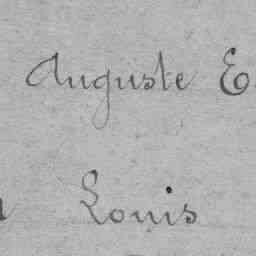 Auguste E
Louis